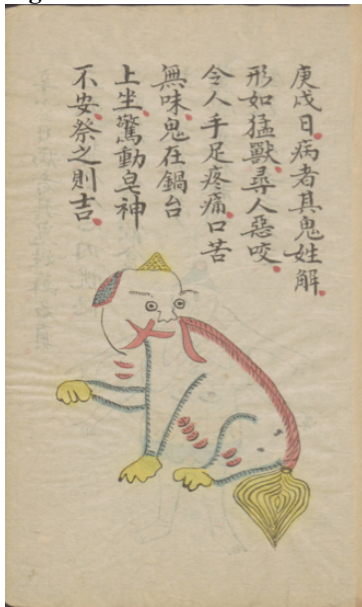 庚戌日病者其鬼姓解
形如猛獸尋人惡咬
令人手足疼痛口苦
無味鬼在鍋台
上坐驚動皂神
不安祭之則吉